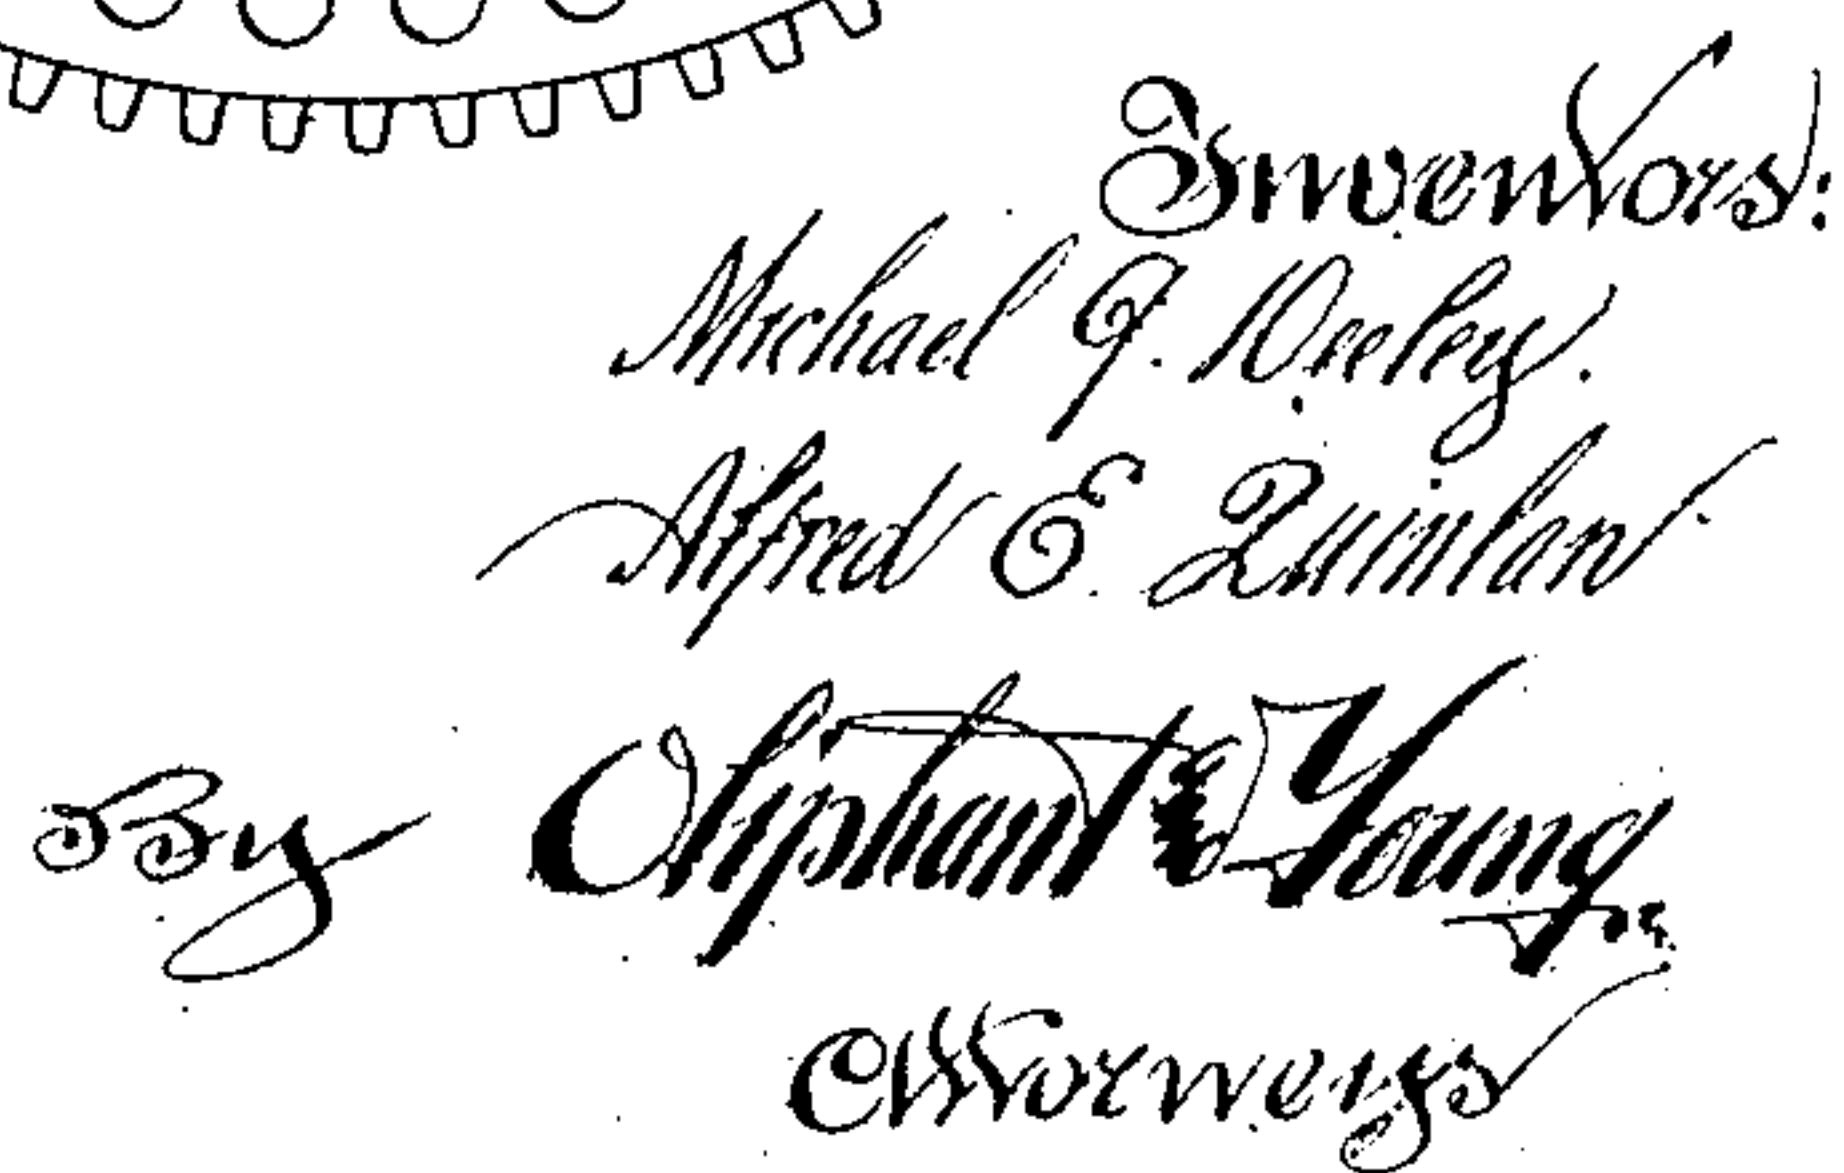 Inventors:
Michael F. Neeley.
Alfred E. Quinlan
By Oliphant & Young
Attorneys